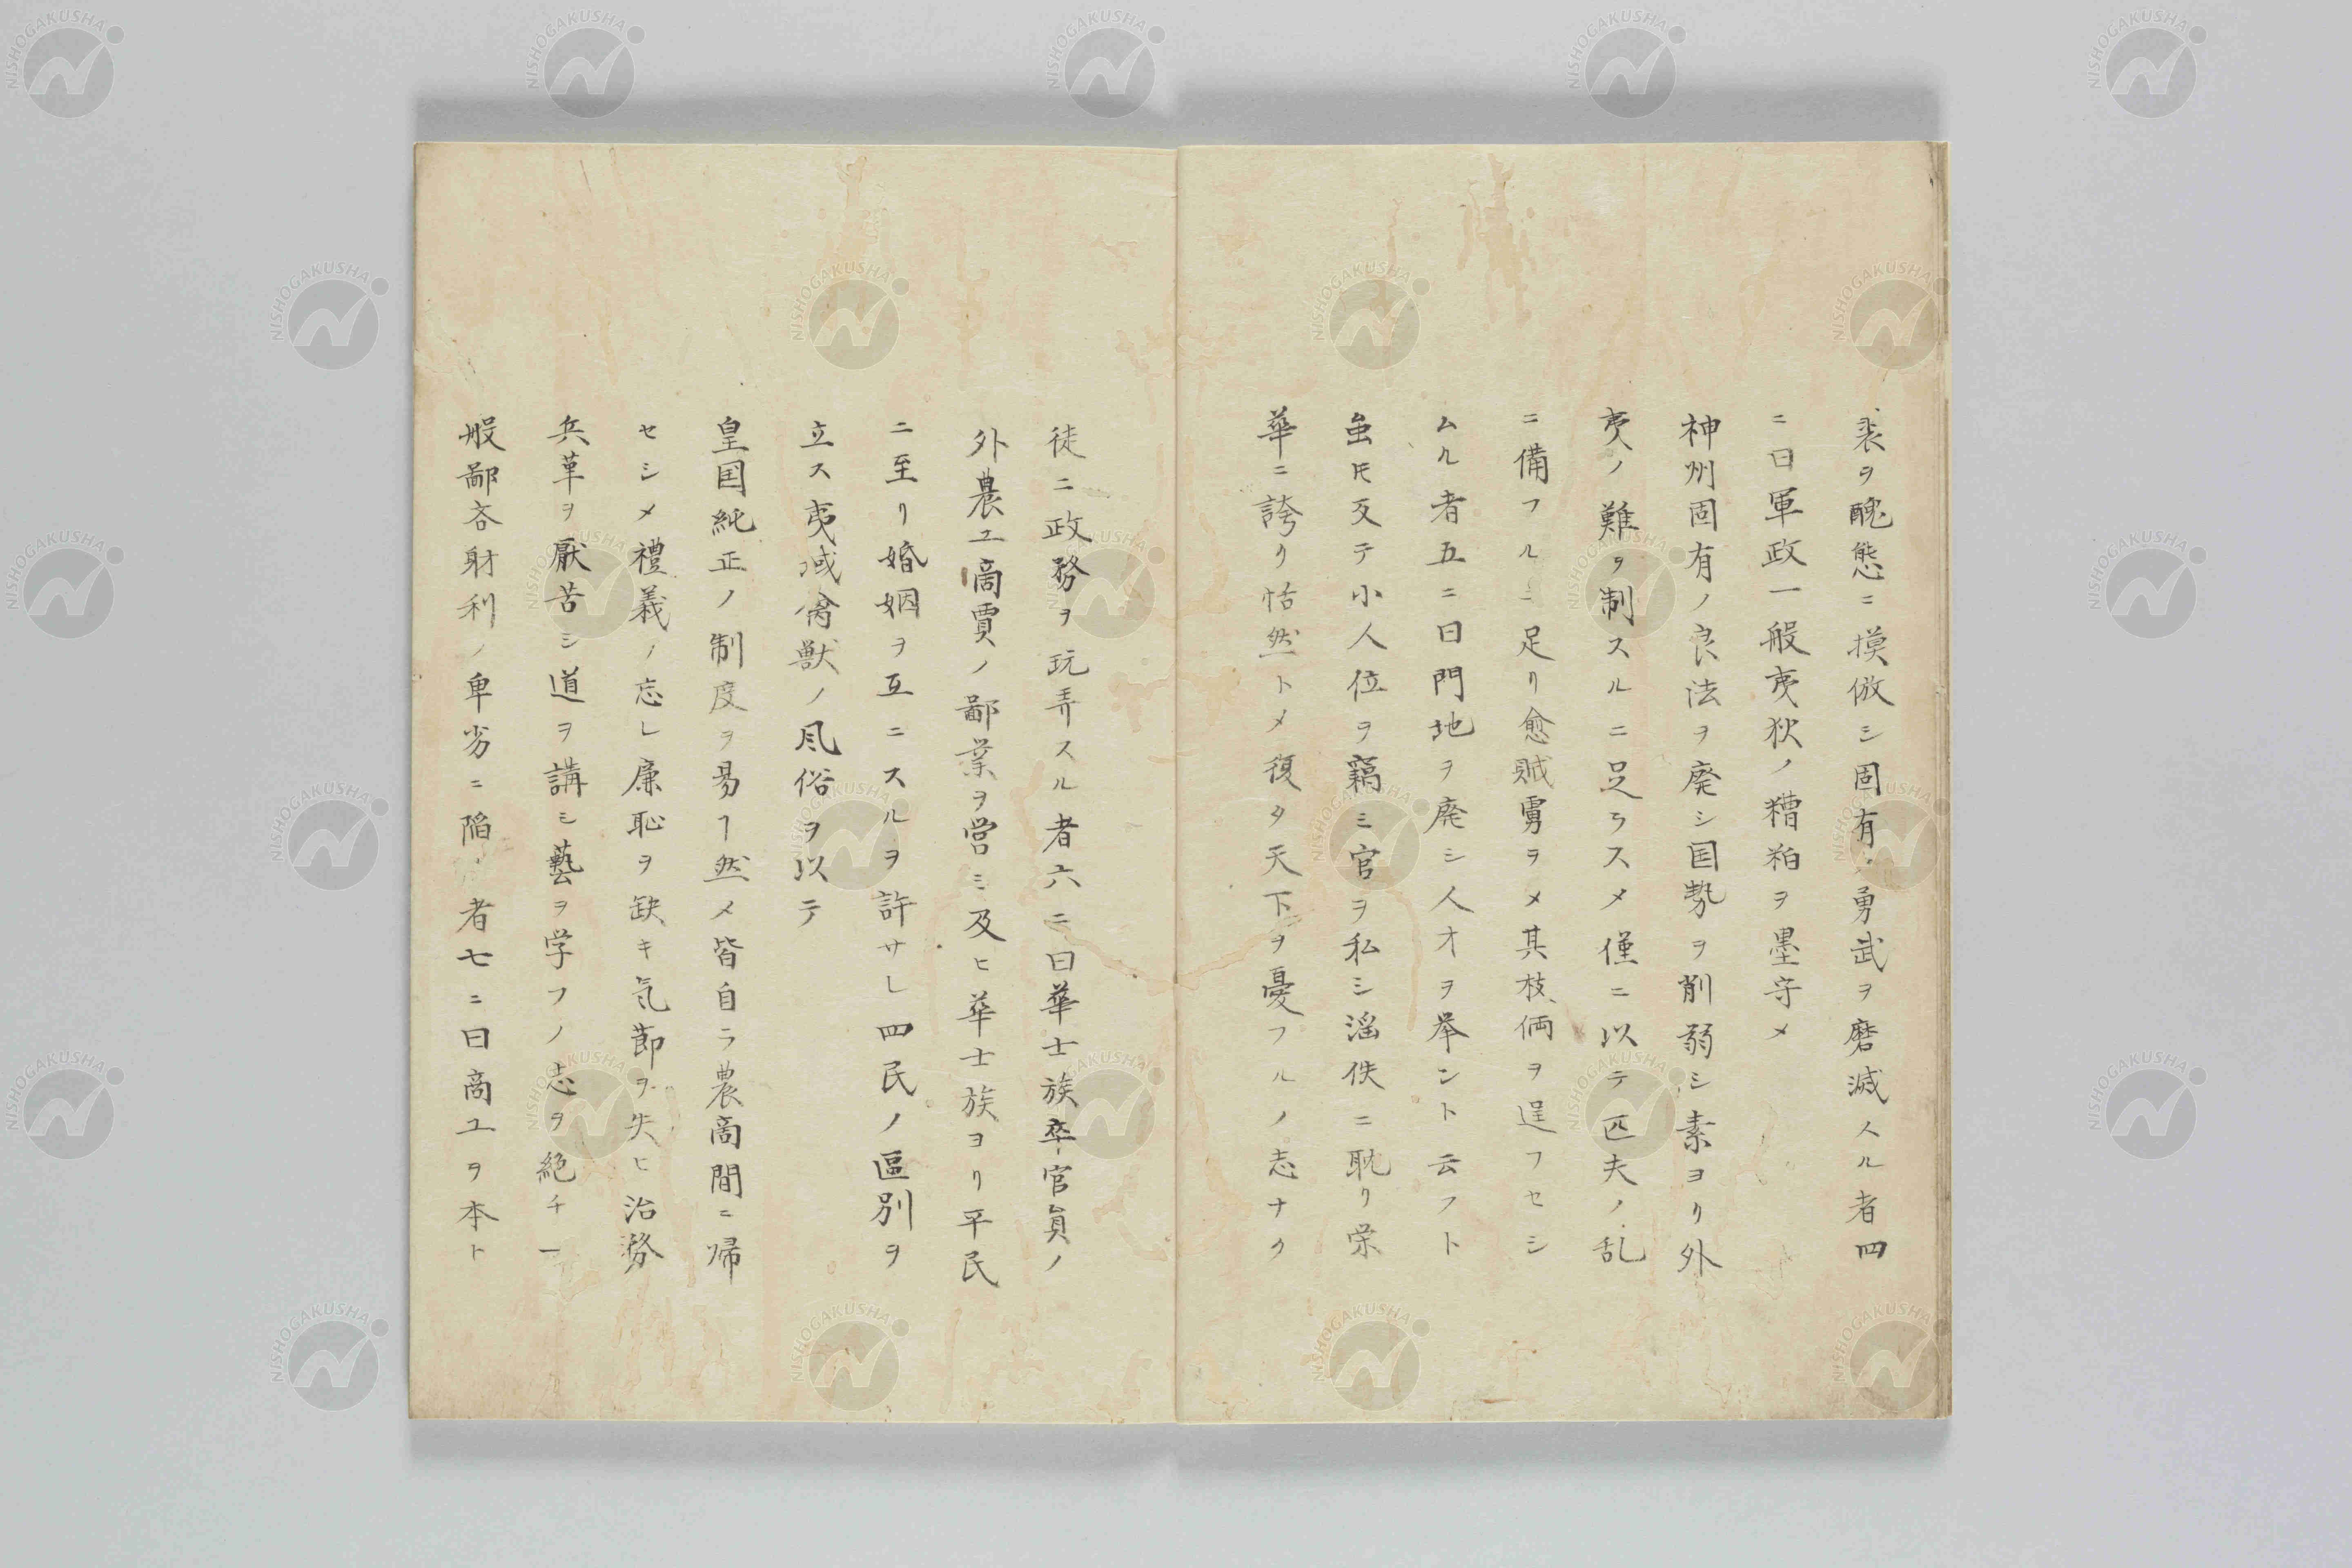 裘ヲ醜態ニ摸倣シ固有ノ勇武ヲ磨滅スル者四
ニ曰軍政一般夷狄ノ糟粕ヲ墨守メ
神州固有ノ良法ヲ廃シ国勢ヲ削弱シ素ヨリ外
夷ノ難ヲ制スルニ足ラスメ僅ニ以テ匹夫ノ乱
ニ備フルニ足リ愈賊虜ヲメ其枝倆ヲ逞フセシ
ムル者五ニ曰門地ヲ廃シ人才ヲ挙ント云フト
虽𪜈反テ小人位ヲ竊ミ官ヲ私シ滛佚ニ耽リ栄
華ニ誇リ恬然トメ復タ天下ヲ憂フルノ志ナク
徒ニ政務ヲ玩弄スル者六ニ曰華士族卒官員ノ
外農工商賈ノ鄙業ヲ営ミ及ヒ華士族ヨリ平民
ニ至リ婚姻ヲ互ニスルヲ許サレ四民ノ區別ヲ
立ス夷域禽獣ノ風俗ヲ以テ
皇国純正ノ制度ヲ易ヿ然メ皆自ラ農商間ニ帰
セシメ禮義ノ忘レ廉恥ヲ缺キ気節ヲ失ヒ治務
兵革ヲ厭苦シ道ヲ講シ藝ヲ学フノ志ヲ絶チ一
般鄙吝財利ノ卑劣ニ陥ル者七ニ曰商工ヲ本ト
NISHOGAKUSHA